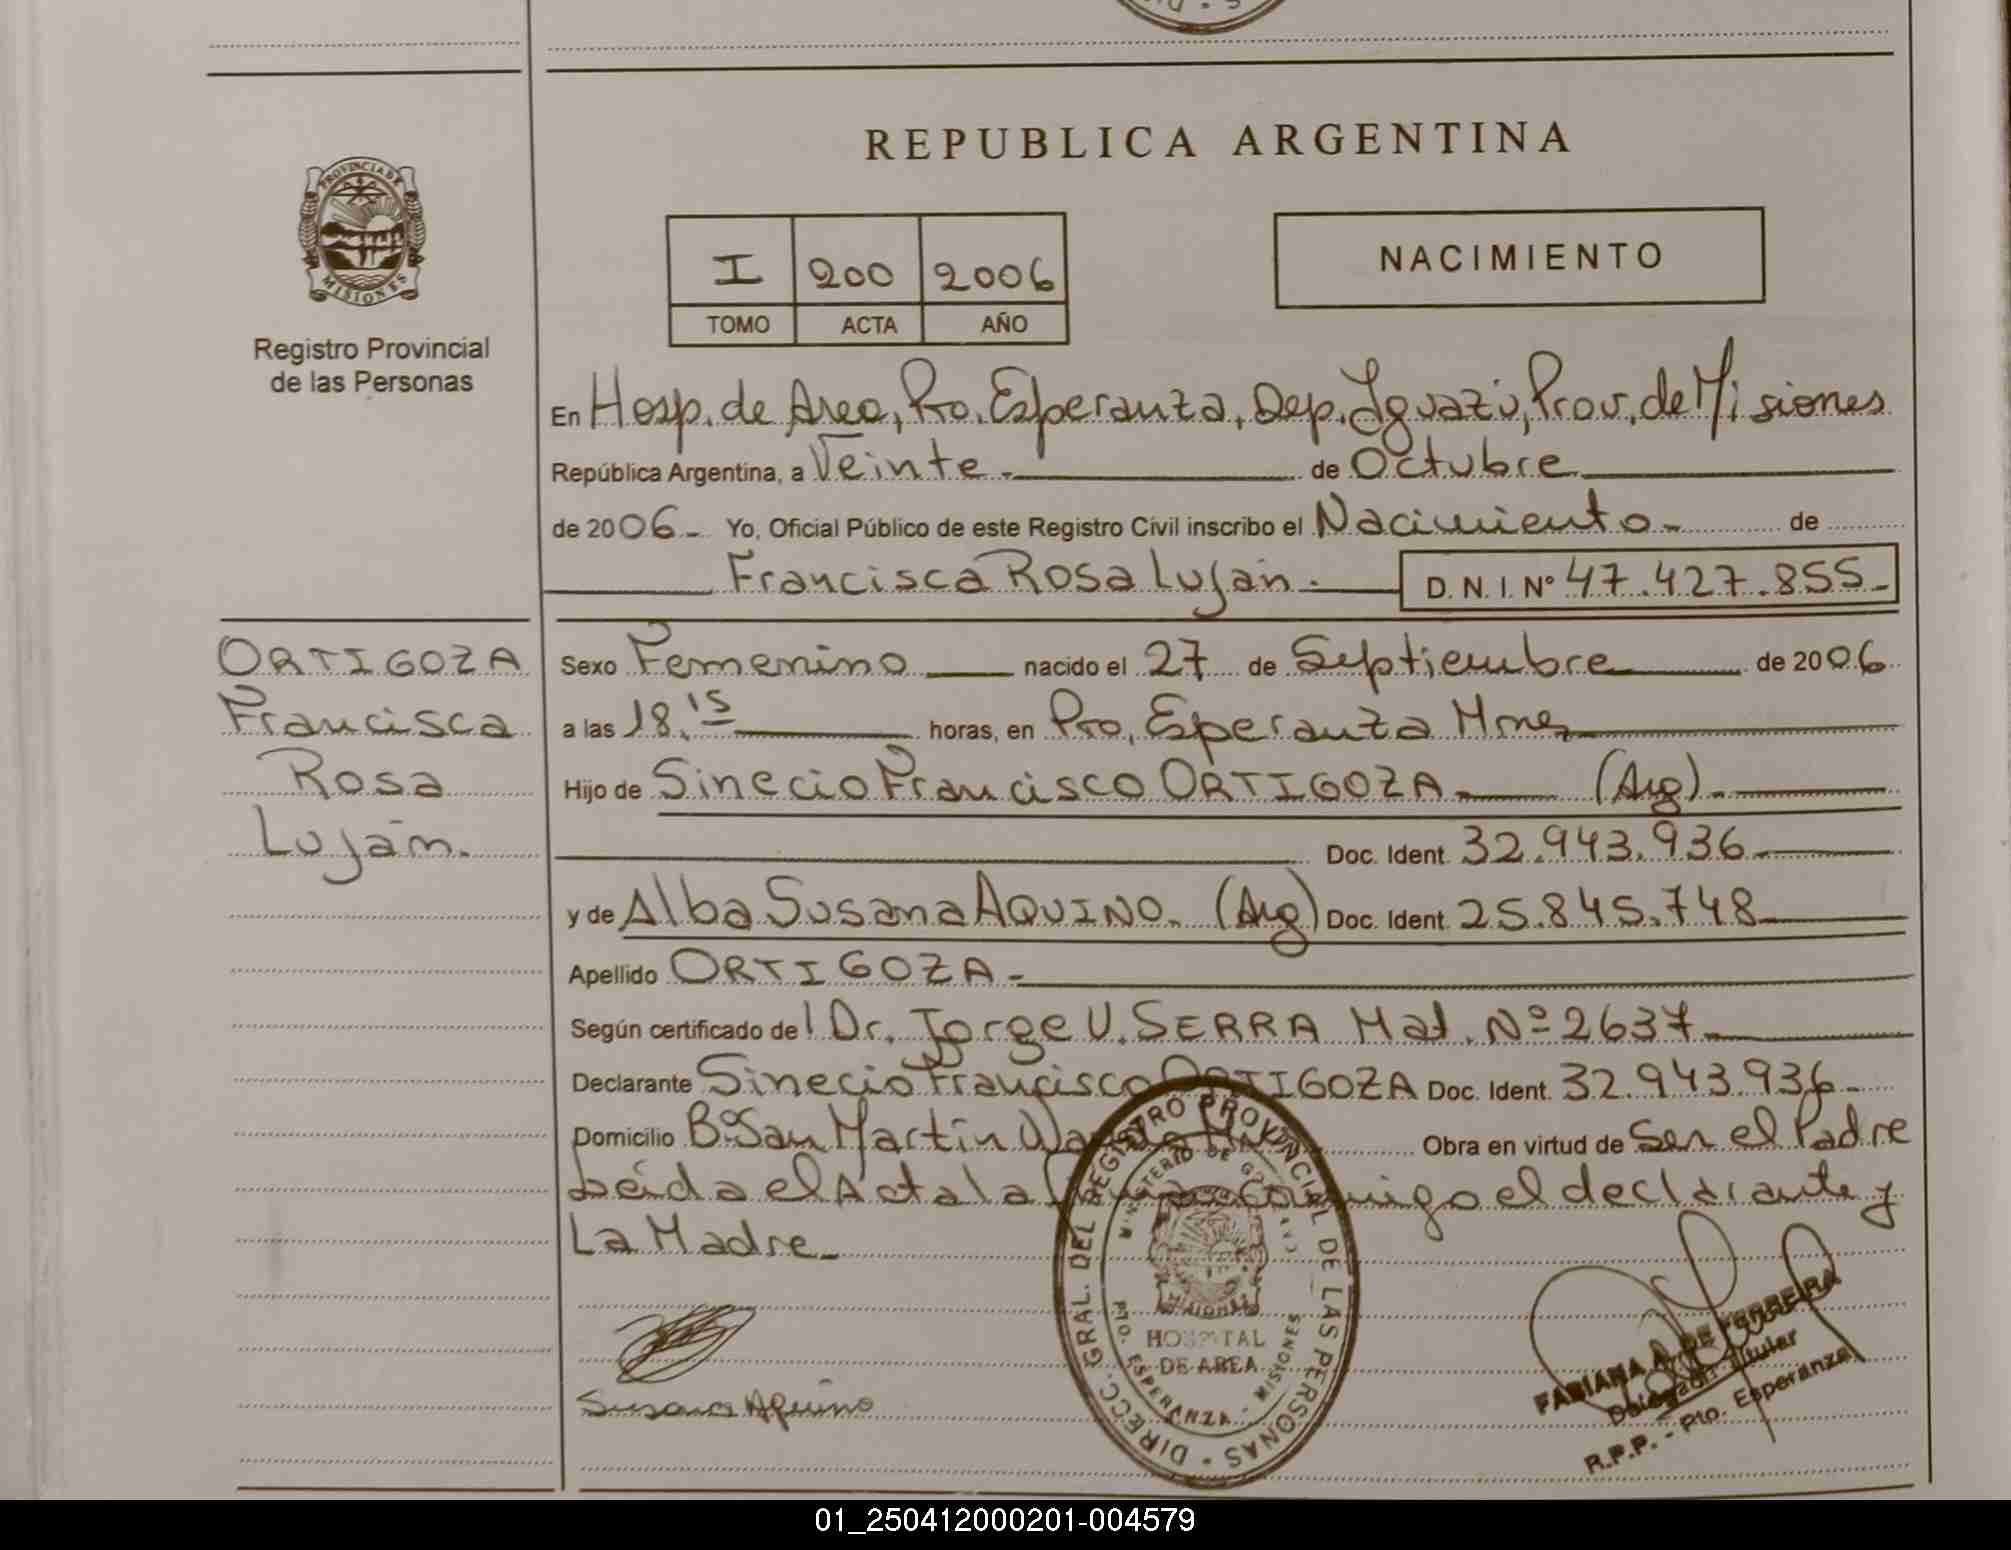 REPUBLICA ARGENTINA
PROVINCIA DE
MISIONES
Registro Provincial
de las Personas
I 200 2006
TOMO ACTA AÑO
NACIMIENTO
En Hosp. de Area, Pto. Esperanza, Dep. Iguazú, Prov. de Misiones
República Argentina, a Veinte.- de Octubre
de 2006.- Yo, Oficial Público de este Registro Civil inscribo el Nacimiento- de
Francisca Rosa Luján.- D. N. I. Nº 47.427.855-
ORTIGOZA
Francisca
Rosa
Luján.
Sexo Femenino nacido el 27 de Septiembre de 2006
a las 18.15 horas, en Pto. Esperanza Mnes
Hijo de Sinecio Francisco ORTIGOZA (Arg).
Doc. Ident. 32.943.936
y de Alba Susana AQUINO. (Arg) Doc. Ident. 25.845.748
Apellido ORTIGOZA-
Según certificado del Dr. Jorge U. SERRA Mat. Nº 2637
Declarante Sinecio Francisco ORTIGOZA Doc. Ident. 32.943.936-
Domicilio Bº San Martín Obra en virtud de Ser el Padre
Leída el Acta la conmigo el declarante y
La Madre-
Susana Aquino
DIRECC. GRAL. DEL REGISTRO PROVINCIAL DE LAS PERSONAS
MINISTERIO DE
HOSPITAL
DE AREA
PTO. ESPERANZA - MISIONES
FABIANA A. DE FERREIRA
Delegada Titular
R.P.P. - Pto. Esperanza
01_250412000201-004579